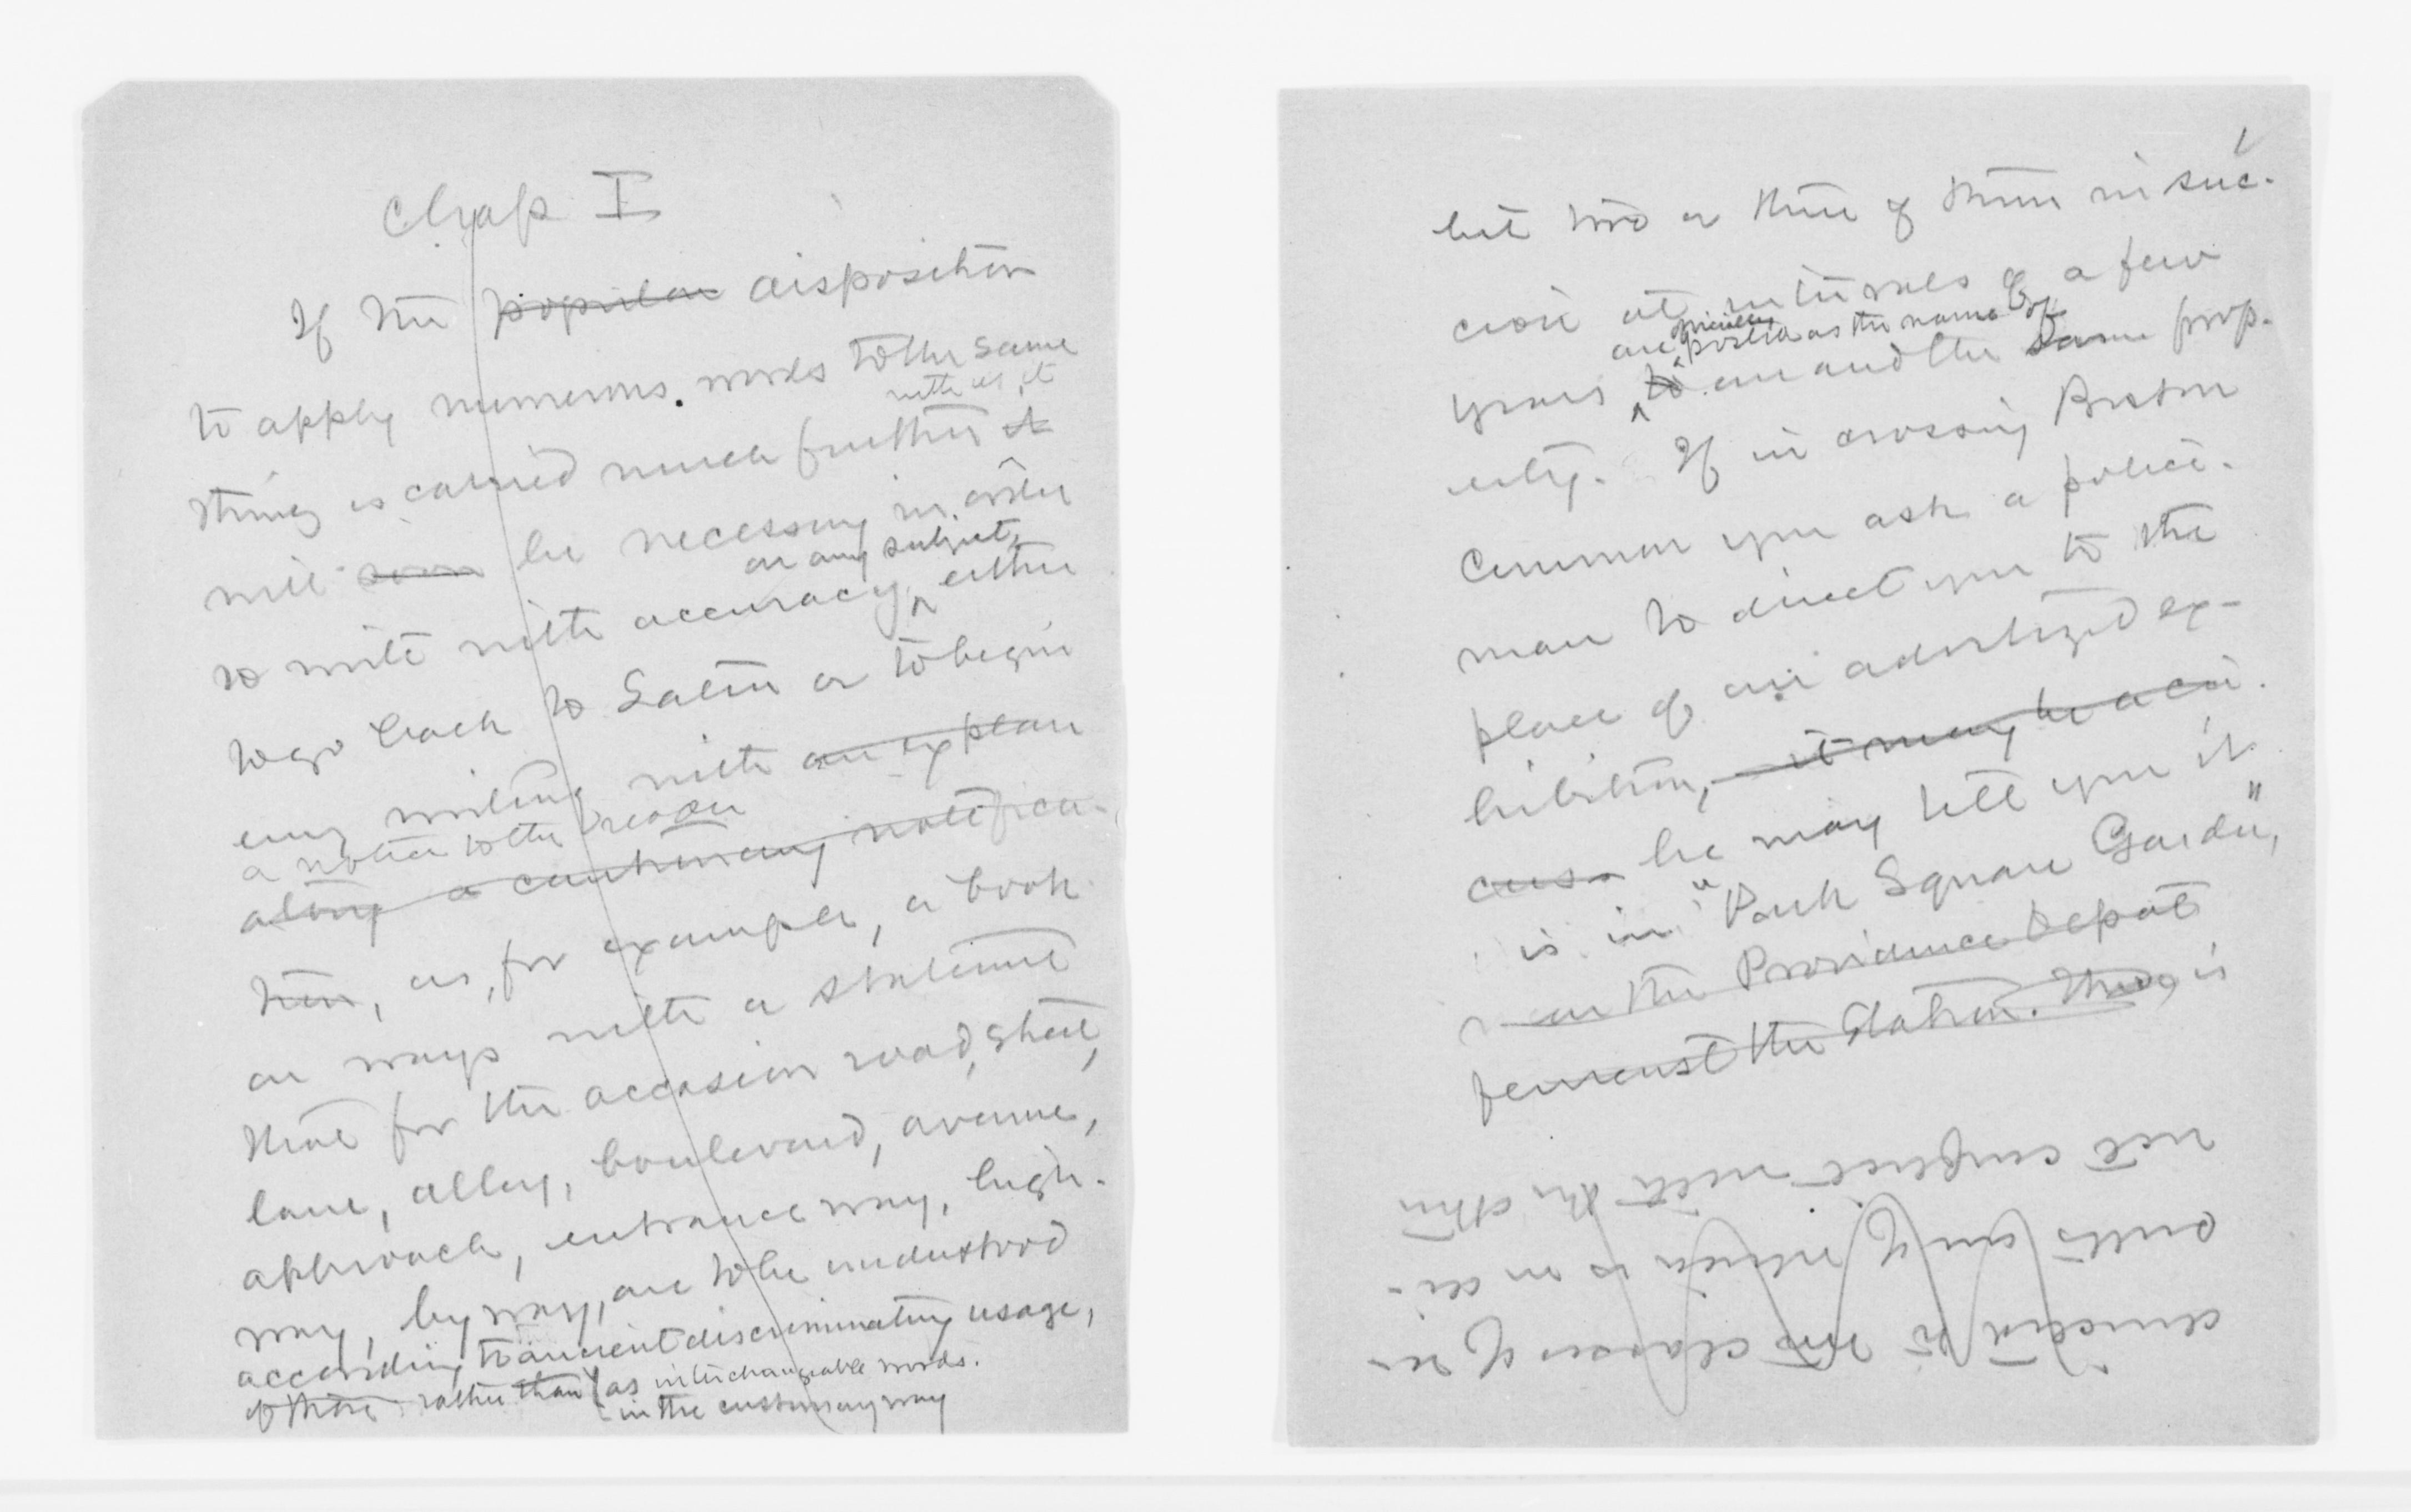 Chap I
If the popular disposition
to apply numerous words to the same
with us, it
thing is carried much further it
will soon be necessary in order
on any subject,
to write with accuracy, either
to go back to Latin or to begin
every writing with an explan
a notice to the reader
along a cautionary notifica-
tion, as, for example, a book
on ways with a statement
that for the occasion road, street,
lane, alley, boulevard, avenue,
approach, entrance way, high-
way, by way, are to be understood
according to ancient discriminating usage,
of these rather than as interchangeable words.
in the customary way
but two or three of them in suc-
cession at intervals of a few
are officially posted as the name of
years to one and the same prop-
erty. If in crossing Boston
Common you ask a police-
man to direct you to the
place of an advertized ex-
hibition, it may be a cir-
cus he may tell you it
is in "Park Square Garden",
or the Providence Depot
fernenst the Station. There is
incident to two classes of re-
sults one of which is in di-
rect conflict with the other